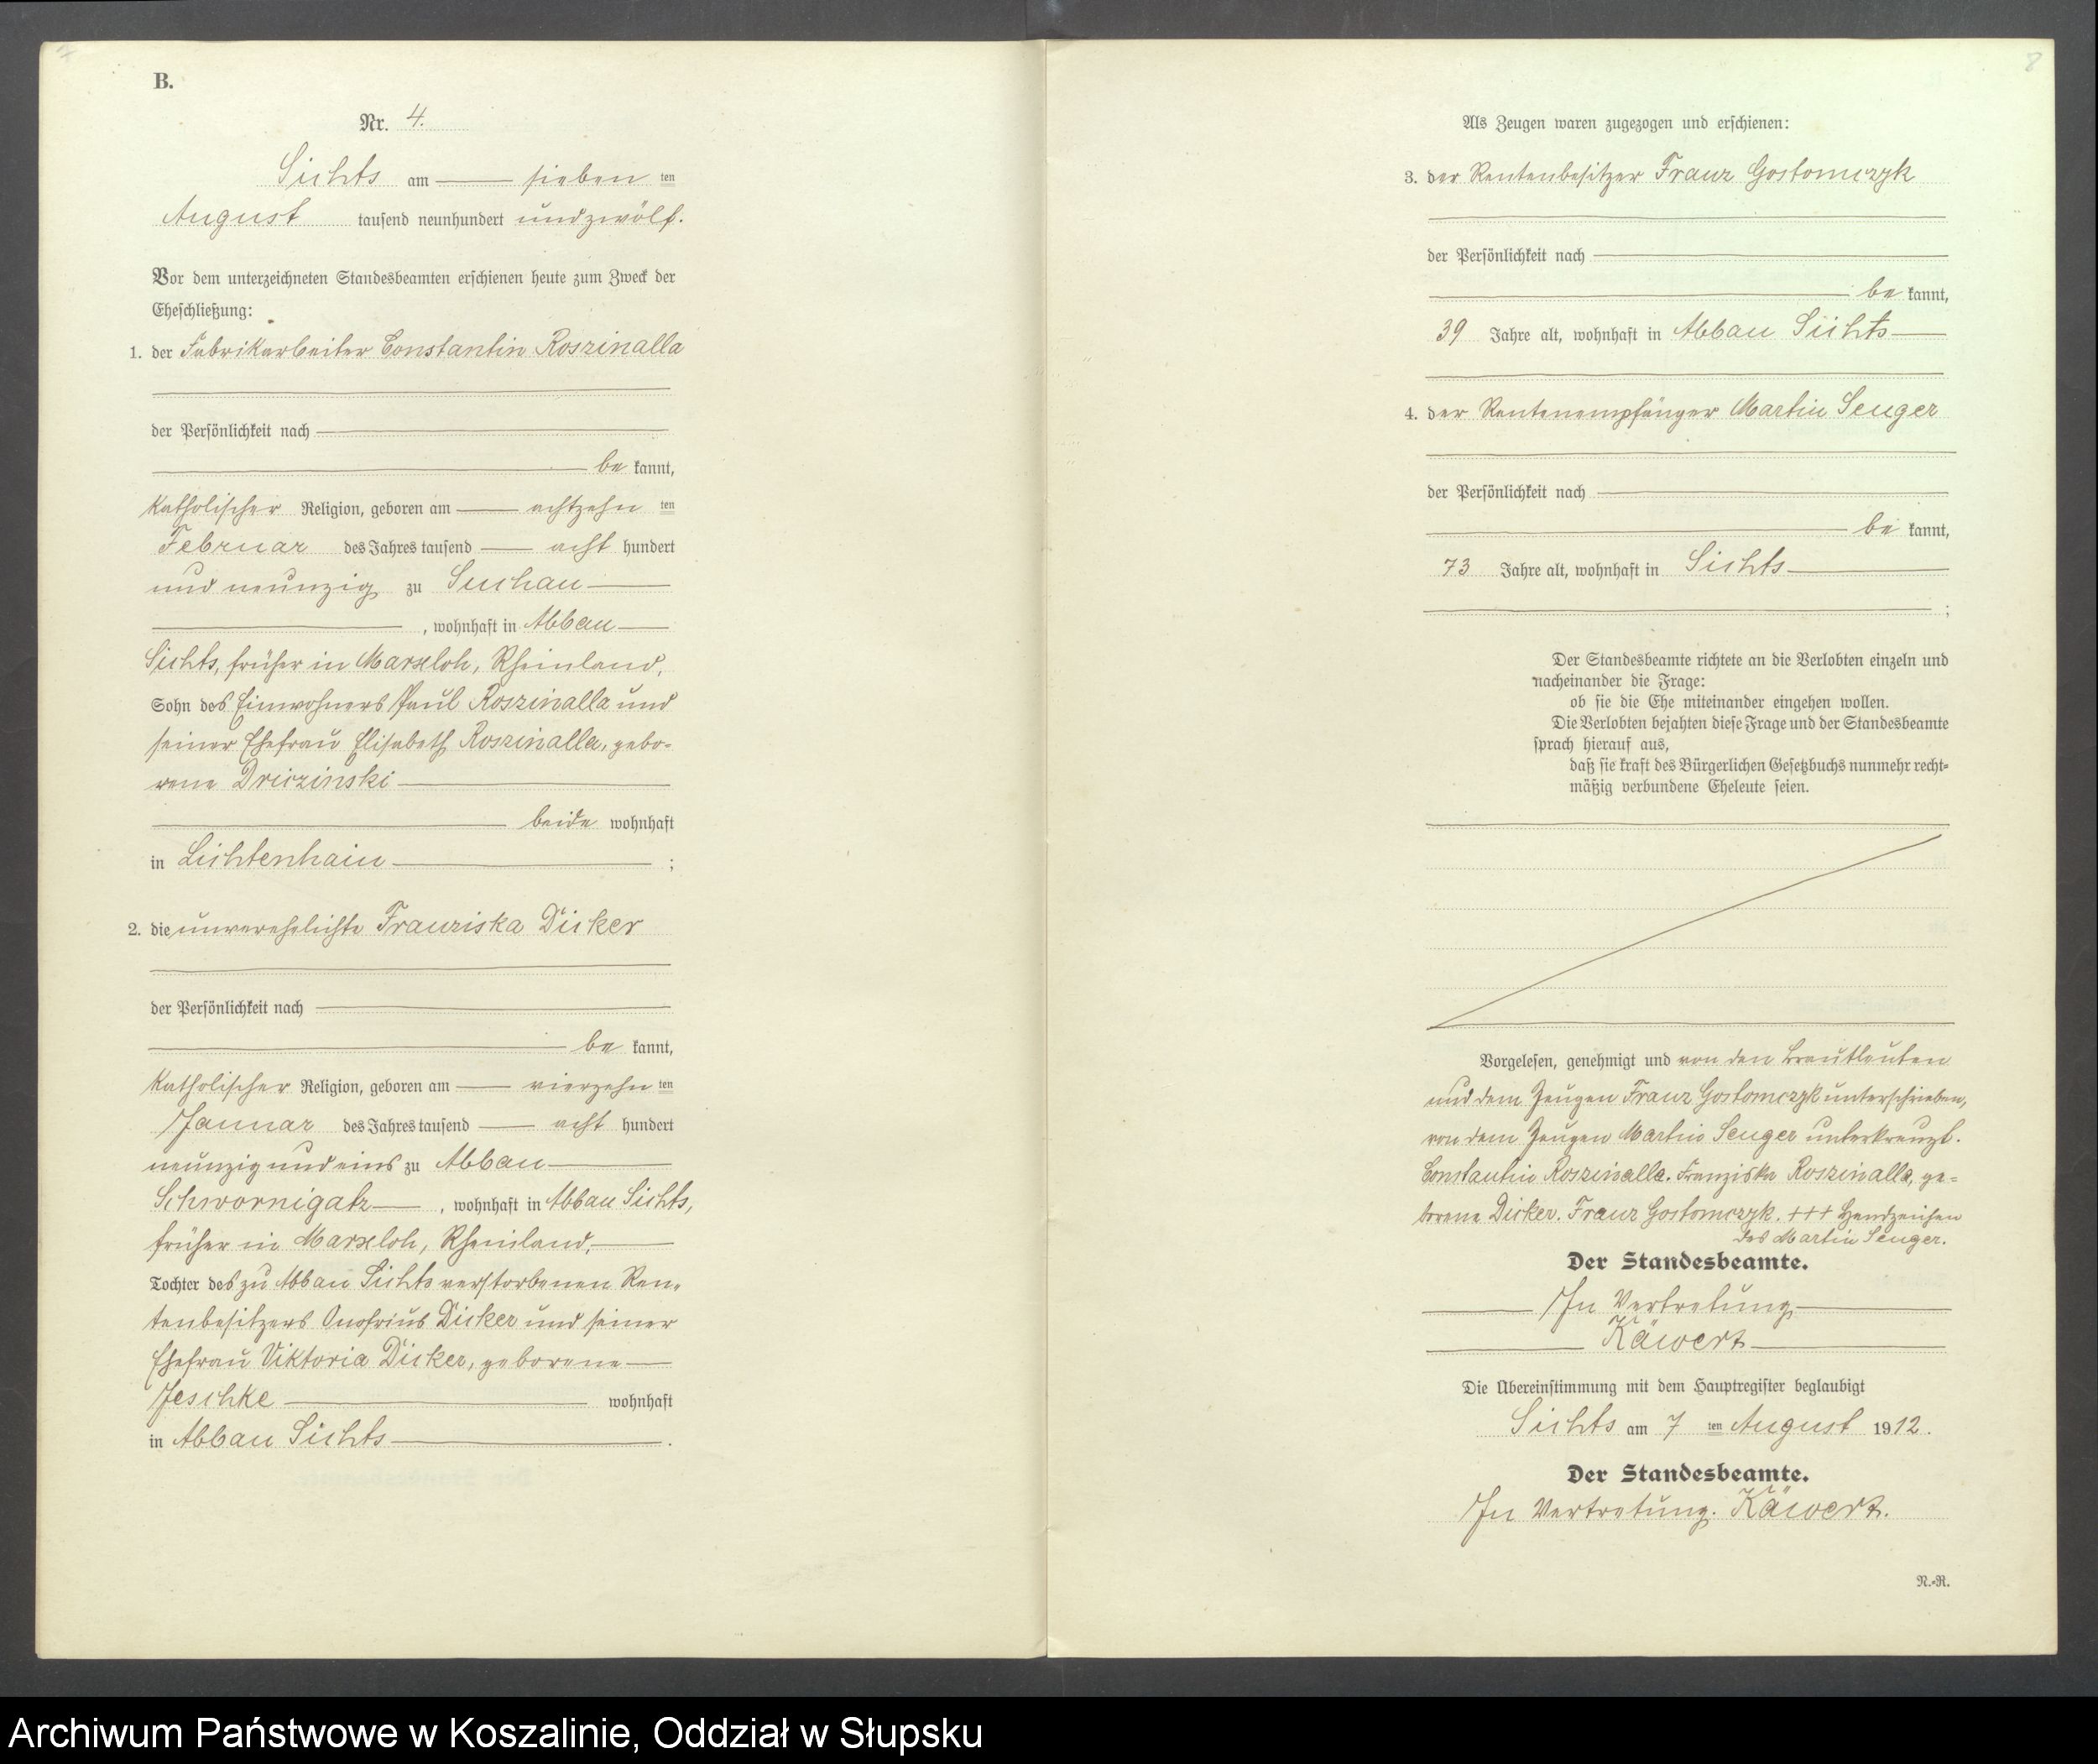 B.
Nr. 4.
Sichts am sieben ten
August tausend neunhundert und zwölf.
Vor dem unterzeichneten Standesbeamten erschienen heute zum Zweck der
Eheschließung:
1. der Fabrikarbeiter Constantin Roszinalla
der Persönlichkeit nach
be kannt,
katholischer Religion, geboren am achtzehn ten
Februar des Jahres tausend acht hundert
und neunzig zu Suchau
, wohnhaft in Abbau
Sichts, früher in Marxloh, Rheinland,
Sohn des Einwohners Paul Roszinalla und
seiner Ehefrau Elisabeth Roszinalla, gebo-
rene Driczinski
beide wohnhaft
in Lichtenhain ;
2. die unverehelichte Franziska Dicker
der Persönlichkeit nach
be kannt,
katholischer Religion, geboren am vierzehn ten
Januar des Jahres tausend acht hundert
neunzig und eins zu Abbau
Schwornigatz , wohnhaft in Abbau Sichts,
früher in Marxloh, Rheinland,
Tochter des zu Abbau Sichts verstorbenen Ren-
tenbesitzers Onofrius Dicker und seiner
Ehefrau Viktoria Dicker, geborene
Jeschke wohnhaft
in Abbau Sichts .
8
Als Zeugen waren zugezogen und erschienen:
3. der Rentenbesitzer Franz Gostomczyk
der Persönlichkeit nach
be kannt,
39 Jahre alt, wohnhaft in Abbau Sichts
4. der Rentenempfänger Martin Senger
der Persönlichkeit nach
be kannt,
73 Jahre alt, wohnhaft in Sichts
;
Der Standesbeamte richtete an die Verlobten einzeln und
nacheinander die Frage:
ob sie die Ehe miteinander eingehen wollen.
Die Verlobten bejahten diese Frage und der Standesbeamte
sprach hierauf aus,
daß sie kraft des Bürgerlichen Gesetzbuchs nunmehr recht-
mäßig verbundene Eheleute seien.
Vorgelesen, genehmigt und von den Brautleuten
und dem Zeugen Franz Gostomczyk unterschrieben,
von dem Zeugen Martin Senger unterkreuzt.
Constantin Roszinalla. Franziska Roszinalla, ge-
borene Dicker. Franz Gostomczyk. +++ Handzeichen
des Martin Senger.
Der Standesbeamte.
In Vertretung
Käwert
Die Übereinstimmung mit dem Hauptregister beglaubigt
Sichts am 7 ten August 1912.
Der Standesbeamte.
In Vertretung. Käwert.
N.-R.
Archiwum Państwowe w Koszalinie, Oddział w Słupsku